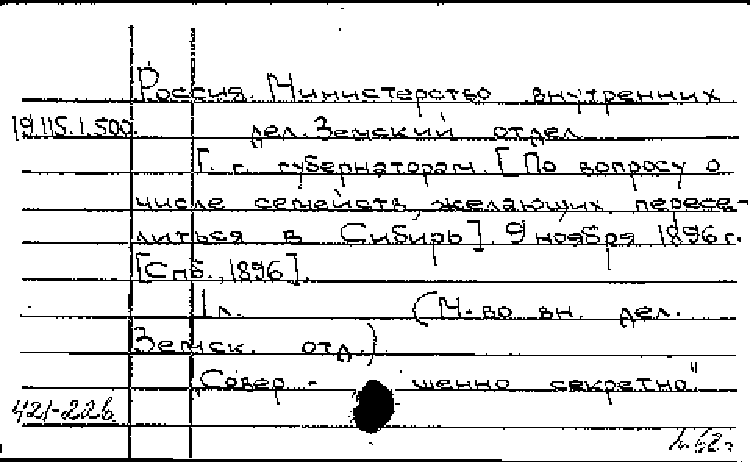 Россия. Министерство внутренних
19.115.1.500. дел. Земский отдел
Г. г. губернаторам. [По вопросу о
числе семейств, желающих пересе-
литься в Сибирь]. 9 ноября 1896 г.
[Спб., 1896].
1 л. (М-во вн. дел.
Земск. отд.)
"Совер- шенно секретно"
421-22б